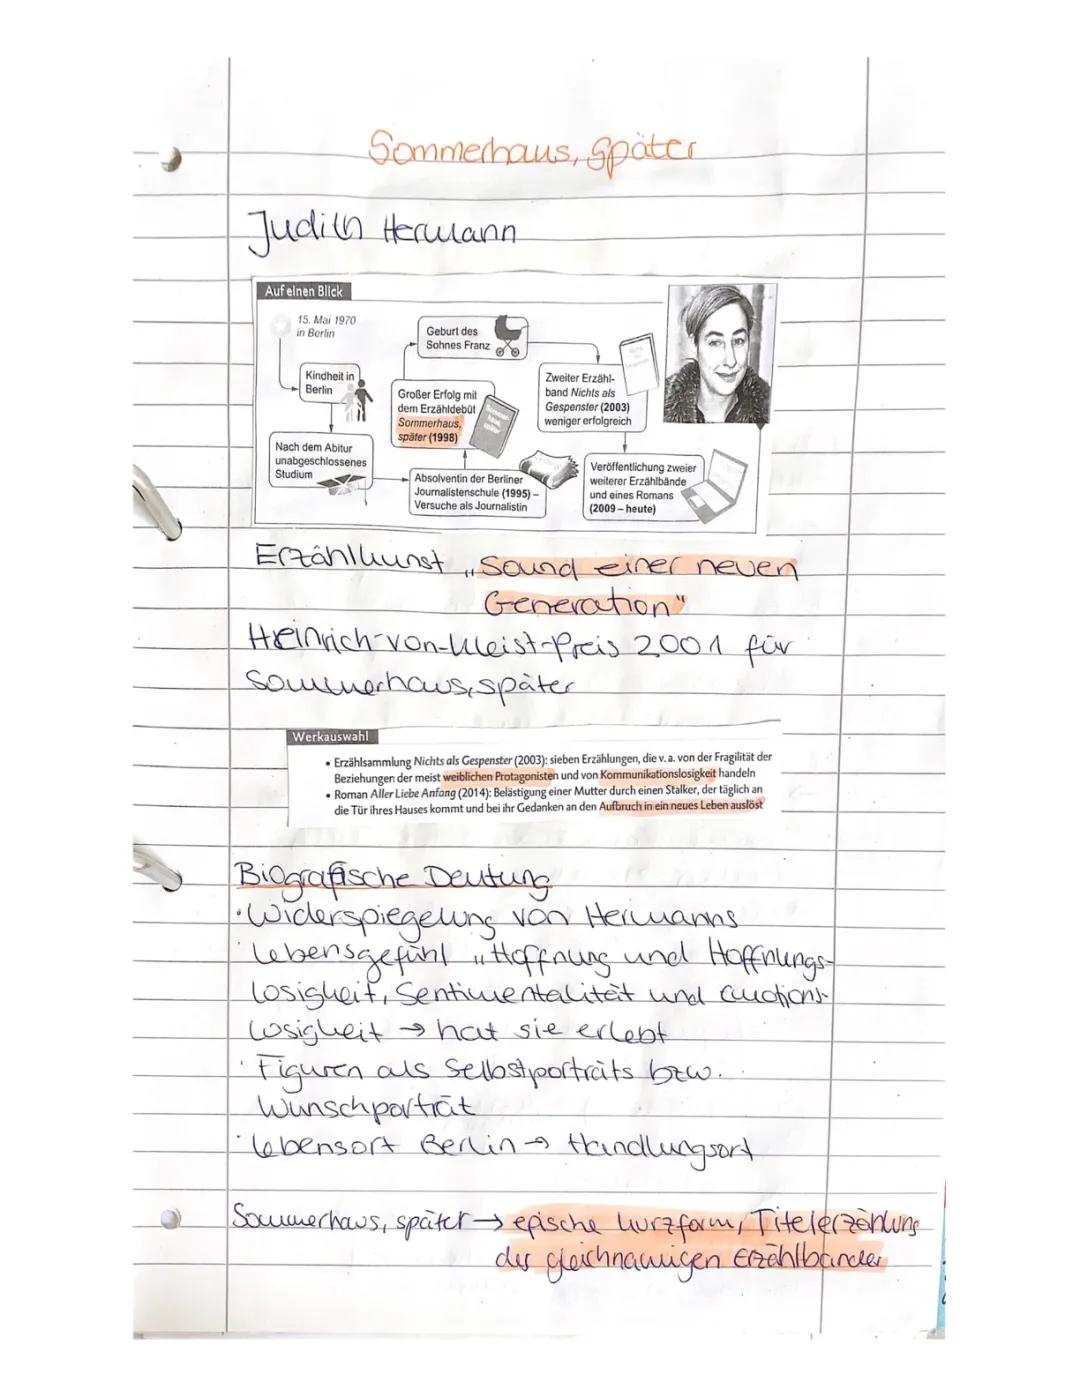 Sommerhaus, später
Judith Hermann
Auf einen Blick
15. Mai 1970
in Berlin
Kindheit in
Berlin
Nach dem Abitur
unabgeschlossenes
Studium
Absolventin der Berliner
Journalistenschule (1995) –
Versuche als Journalistin
Großer Erfolg mit
dem Erzähldebüt
Sommerhaus,
später (1998)
Geburt des
Sohnes Franz
Zweiter Erzähl-
band Nichts als
Gespenster (2003)
weniger erfolgreich
Veröffentlichung zweier
weiterer Erzählbände
und eines Romans
(2009 – heute)
Erzählkunst „Sound einer neuen
Generation"
Heinrich-von-Kleist-Preis 2001 für
Sommerhaus, später
Werkauswahl
• Erzählsammlung Nichts als Gespenster (2003): sieben Erzählungen, die v. a. von der Fragilität der
Beziehungen der meist weiblichen Protagonisten und von Kommunikationslosigkeit handeln
• Roman Aller Liebe Anfang (2014): Belästigung einer Mutter durch einen Stalker, der täglich an
die Tür ihres Hauses kommt und bei ihr Gedanken an den Aufbruch in ein neues Leben auslöst
Biografische Deutung
• Widerspiegelung von Hermanns
Lebensgefühl „Hoffnung und Hoffnungs-
losigkeit, Sentimentalität und Emotions-
losigkeit → hat sie erlebt
• Figuren als Selbstporträts bzw.
Wunschporträt
• Lebensort Berlin → Handlungsort
Sommerhaus, später → epische Kurzform, Titelerzählung
der gleichnamigen Erzählbänder